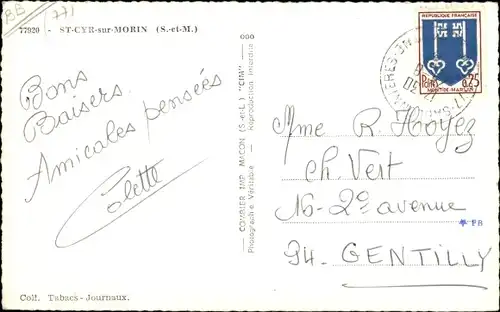 BB (77)
77920 - ST-CYR-sur-MORIN (S.-et-M.)
Bons
Baisers.
Amicales pensées
Colette
Coll. Tabacs - Journaux.
COMBIER IMP. MACON (S.-et-L.) "CIM"
Photographie Véritable - Reproduction Interdite
RÉPUBLIQUE FRANÇAISE
Postes 0,25
MONT-DE-MARSAN
17 30
Mme R. Hoyez
Ch. Vert
16 - 2e avenue
* FB
94. GENTILLY